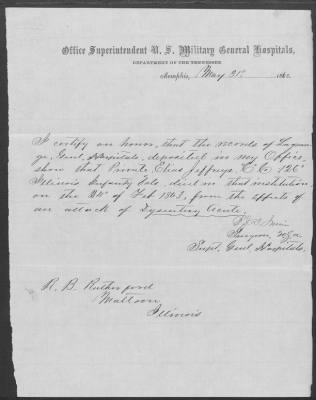 Office Superintendent U. S. Military General Hospitals,
DEPARTMENT OF THE TENNESSEE
Memphis, May 21st 186
I certify on honor, that the records of Lagran-
ge, Genl Hospitals, deposited in my Office,
show that Private, Elias Jeffreys, "C" 126"
Illinois Infantry Vols, died in that institution,
on the of Feb 1863, from the effects of
an attack of Dysentery Acute.
Irwin
Surgeon, USA
Supt, Genl Hospitals.
R. B. Rutherford
Mattoon,
Illinois